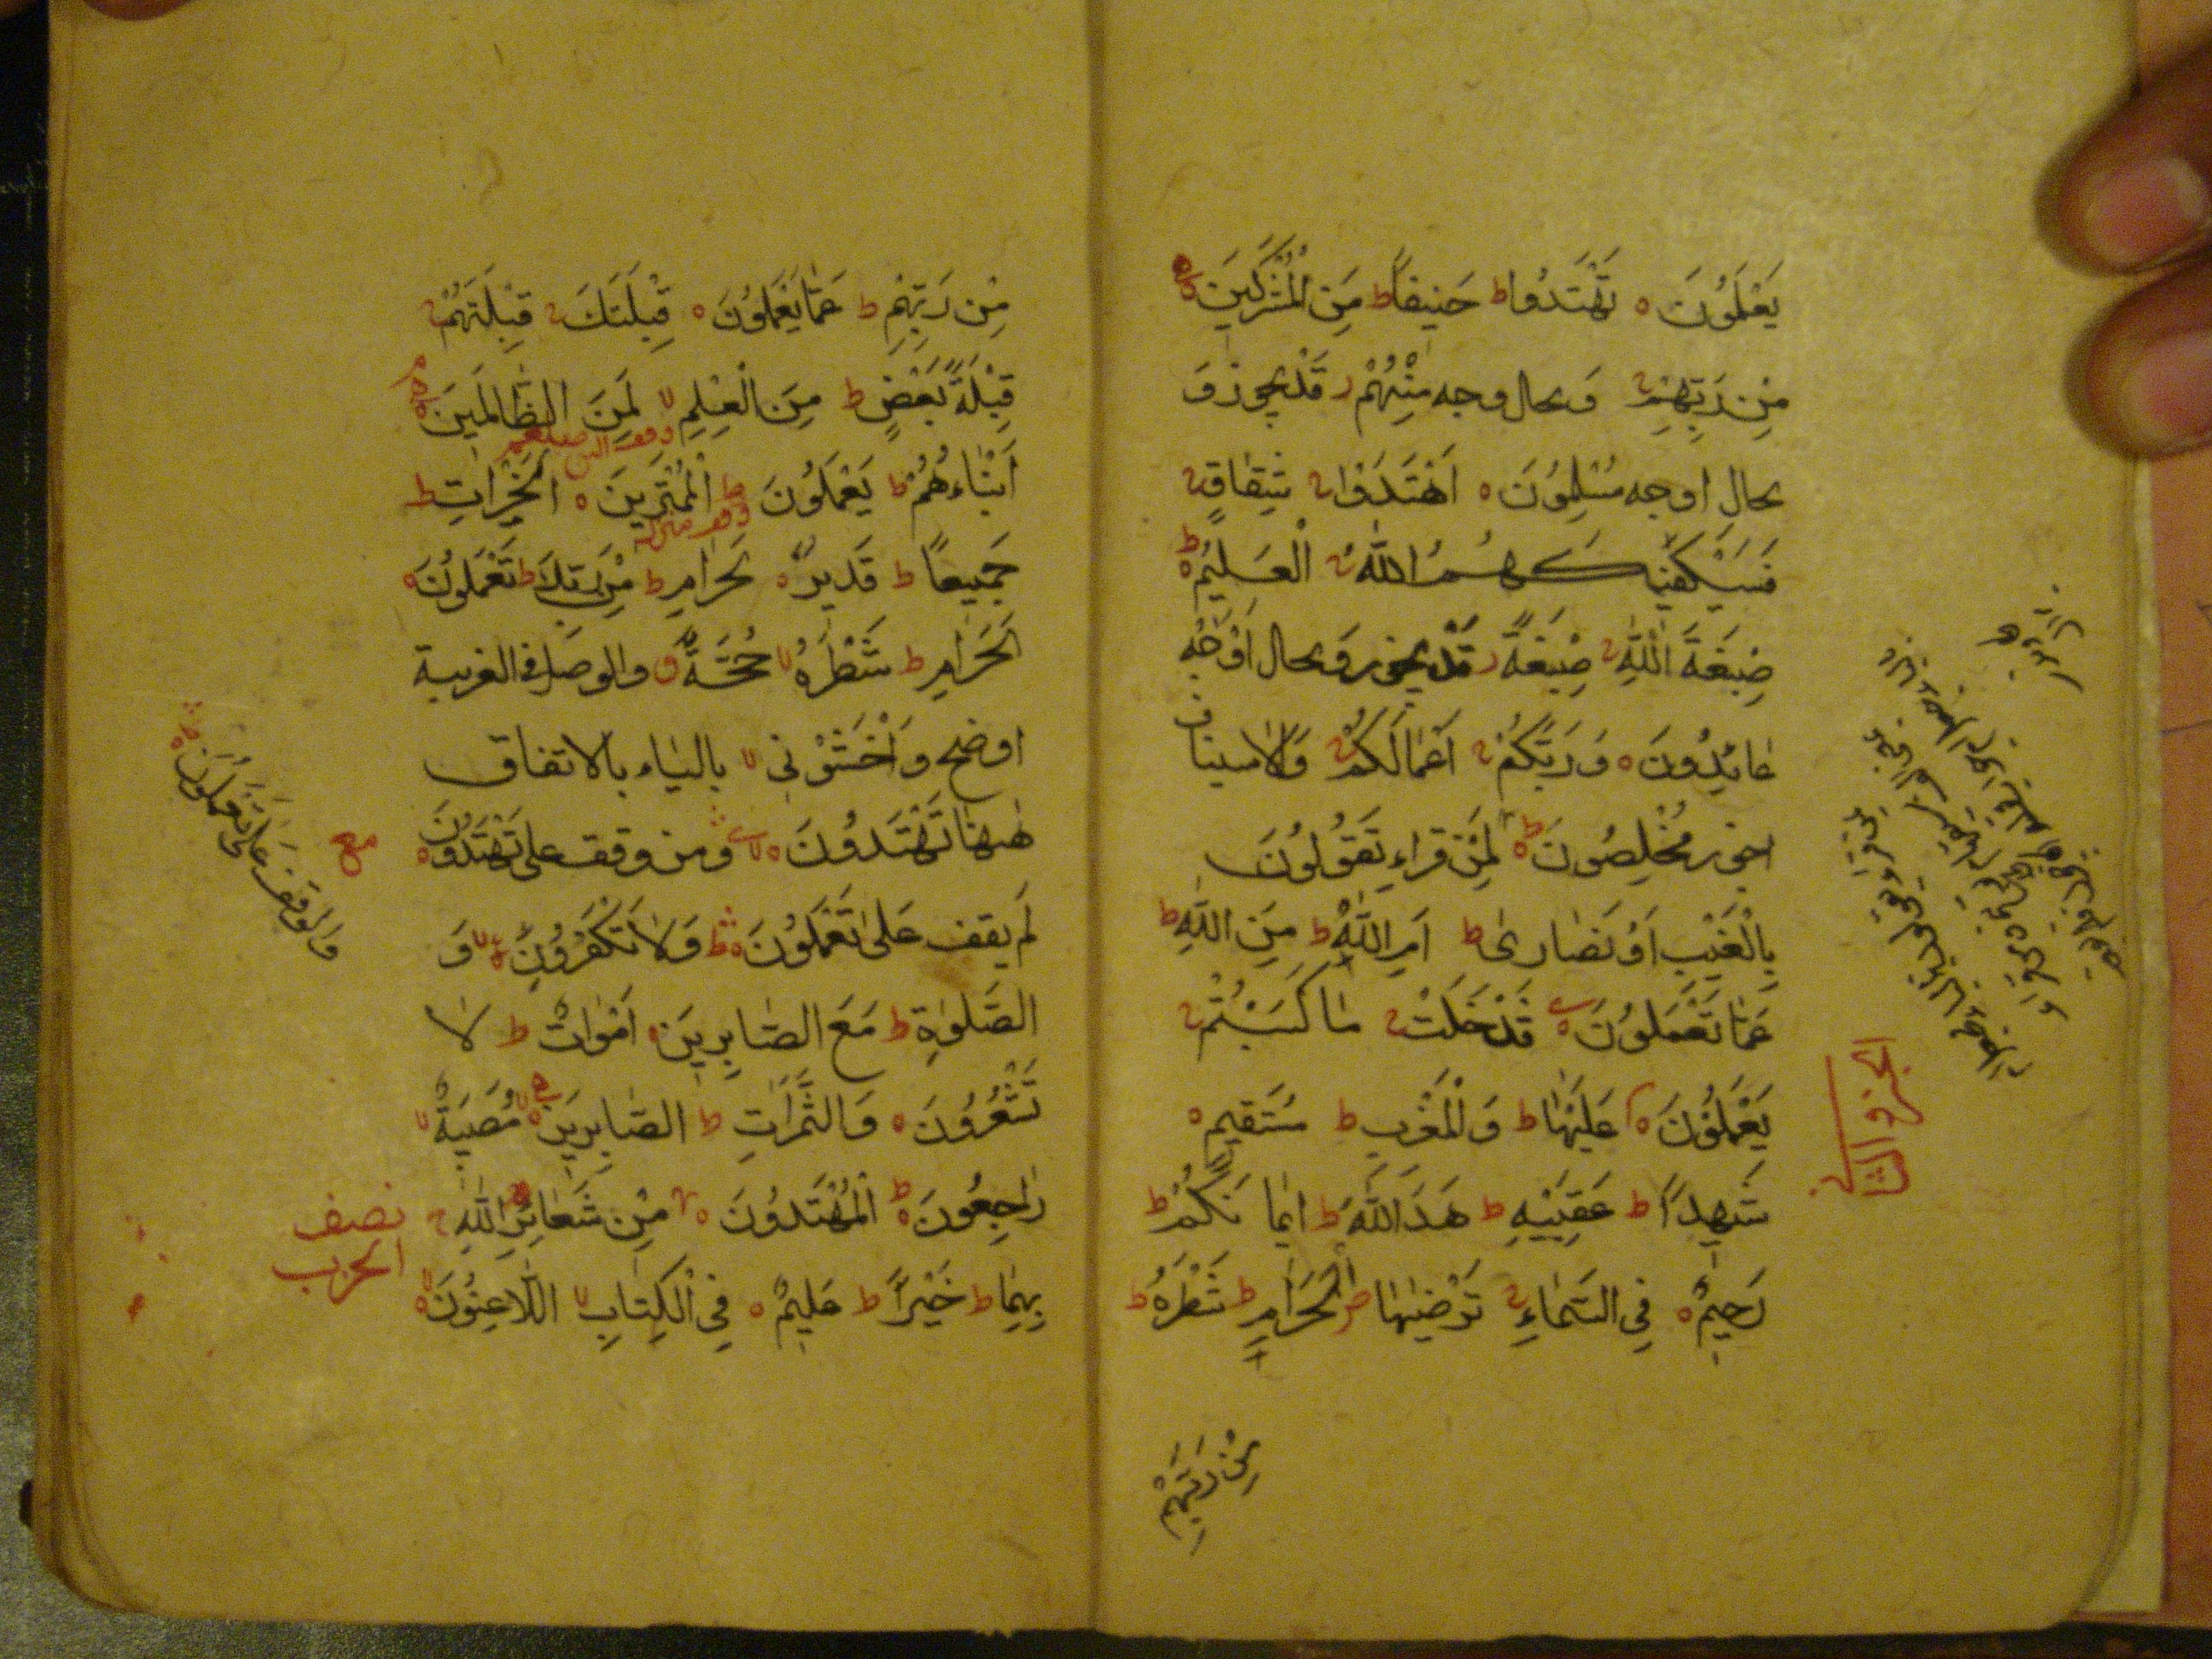 يَعْمَلُونَ ه تَهْتَدُوا ط حَنِيفاً ط مِنَ الْمُشْرِكِينَ
مِنْ رَبِّهِمْ وَبحال وجه مِنْهُمْ ز قَدْ يجوز وَ
بحال اوجه مُسْلِمُونَ ه اهْتَدَوْا شِقَاقٍ
فَسَيَكْفِيكَهُمُ اللهُ الْعَلِيمُ ط
صِبْغَةَ اللهِ صِبْغَةً ز قَدْ يجوز وَبحال اَوْجُه
عَابِدُونَ ه وَرَبُّكُمْ اَعْمَالُكُمْ وَالاستيناف
اجوز مُخْلِصُونَ ط لِمَنْ قراء تَقُولُونَ
بِالْغَيْبِ اَوْ نَصَارىٰ ط اَمِ اللهُ ط مِنَ اللهِ ط
عَمَّا تَعْمَلُونَ ه قَدْ خَلَتْ مَا كَسَبْتُمْ
يَعْمَلُونَ ه عَلَيْهَا ط وَالْمَغْرِبُ ط مُسْتَقِيمٍ ه
شَهِيداً ط عَقِبَيْهِ ط هَدَى اللهُ ط اِيمَانَكُمْ ط
رَحِيمٌ ه فِي السَّمَاءِ تَرْضَيهَا ص الْحَرَامِ ط شَطْرَهُ ط
الجزو الثانى
مِنْ رَبِّهِمْ
مِنْ رَبِّهِمْ ط عَمَّا يَعْمَلُونَ ه قِبْلَتَكَ قِبْلَتَهُمْ
قِبْلَةَ بَعْضٍ ط مِنَ الْعِلْمِ لا لَمِنَ الظَّالِمِينَ
وقف النبى صلعم
اَبْنَاءَهُمْ ط يَعْلَمُونَ الْمُمْتَرِينَ ه الْخَيْرَاتِ ط
وقف منزل
جَمِيعاً ط قَدِيرٌ ه الحَرَامِ ط مِنْ رَبِّكَ ط تَعْمَلُونَ ه
الحَرَامِ ط شَطْرَهُ لا حُجَّةٌ ق والوصل فى الغريبة
اوضح وَاخْشَوْنِى لا بالياء بالاتفاق
ههنا تَهْتَدُونَ ه ومن وقف على تَهْتَدُونَ ه
مع
لم يقف عَلى تَعْلَمُونَ ه وَلَا تَكْفُرُونِ وَ
الصَّلٰوةِ ط مَعَ الصَّابِرِينَ ه اَمْوَاتٌ ط لا
تَشْعُرُونَ ه وَالثَّمَرَاتِ ط الصَّابِرِينَ لا مُصِيبَةٌ لا
رَاجِعُونَ ط الْمُهْتَدُونَ ه مِنْ شَعَائِرِ اللهِ ج
نصف
الحزب
بِهِمَا ط خَيْراً ط عَلِيمٌ ه فِى الْكِتَابِ لا اللَّاعِنُونَ لا
وَالوقف عَلى تَعْلَمُونَ